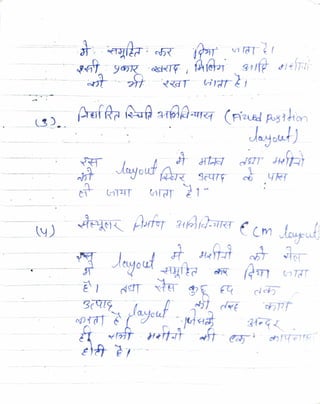 में समूहित कर दिया जाता है।
इसी प्रकार खराद, मिलिंग आदि मशीनों
को भी रखा जाता है।
(3). निर्धारित स्थिति अभिविन्यास (Fixed position
layout)
इस layout में मानव तथा मशीनों
को स्थिर उत्पाद के पास
ले जाया जाता है।
(4) सेल्यूलर निर्माण अभिविन्यास (CM layout)
इस layout में मशीनों को सेल
में समूहित कर दिया जाता
है। तथा सेल कुछ हद तक
उत्पाद layout की तरह कार्य
करता है। जिसके अन्दर
ही सभी मशीनों की एक
होती है।